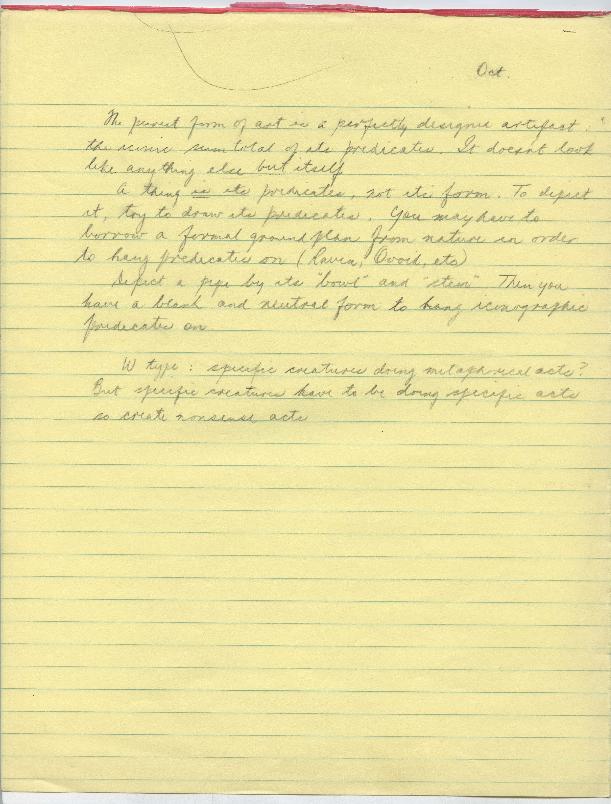 Oct.
The purest form of art is a perfectly designed artifact: "
the iconic sum total of its predicates. It doesnt look
like anything else but itself
A thing is its predicates, not its form. To depict
it, try to draw its predicates. You may have to
borrow a formal groundplan from nature in order
to hang predicates on (Raven, Ovoid, etc)
Depict a pipe by its "bowl" and "stem". Then you
have a blank and neutral form to hang iconographic
predicates on
W type: specific creatures doing metaphorical acts?
But specific creatures have to be doing specific acts
so create nonsense acts